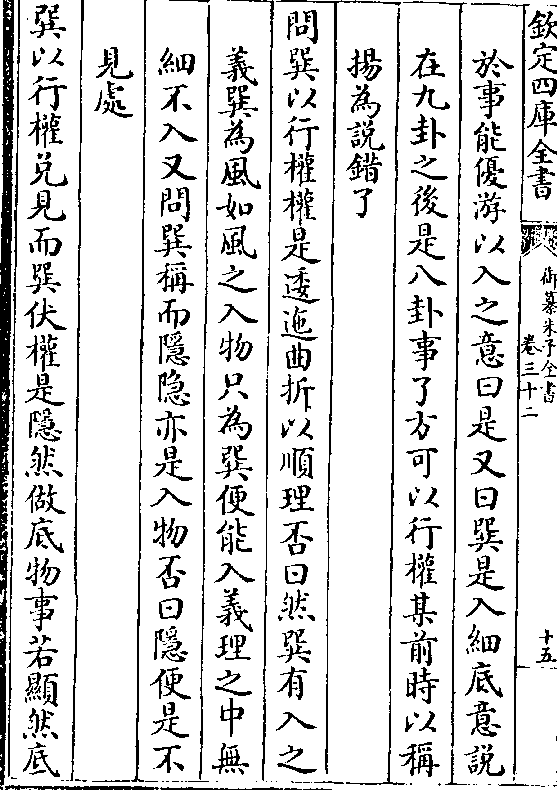 欽定四庫全書
御纂朱子全書
卷三十二
十五
於事能優游以入之意曰是又曰巽是入細底意說
在九卦之後是八卦事了方可以行權某前時以稱
揚為說錯了
問巽以行權權是逶迤曲折以順理否曰然巽有入之
義巽為風如風之入物只為巽便能入義理之中無
細不入又問巽稱而隱隐亦是入物否曰隱便是不
見處
巽以行權兌見而巽伏權是隱然做底物事若顯然底